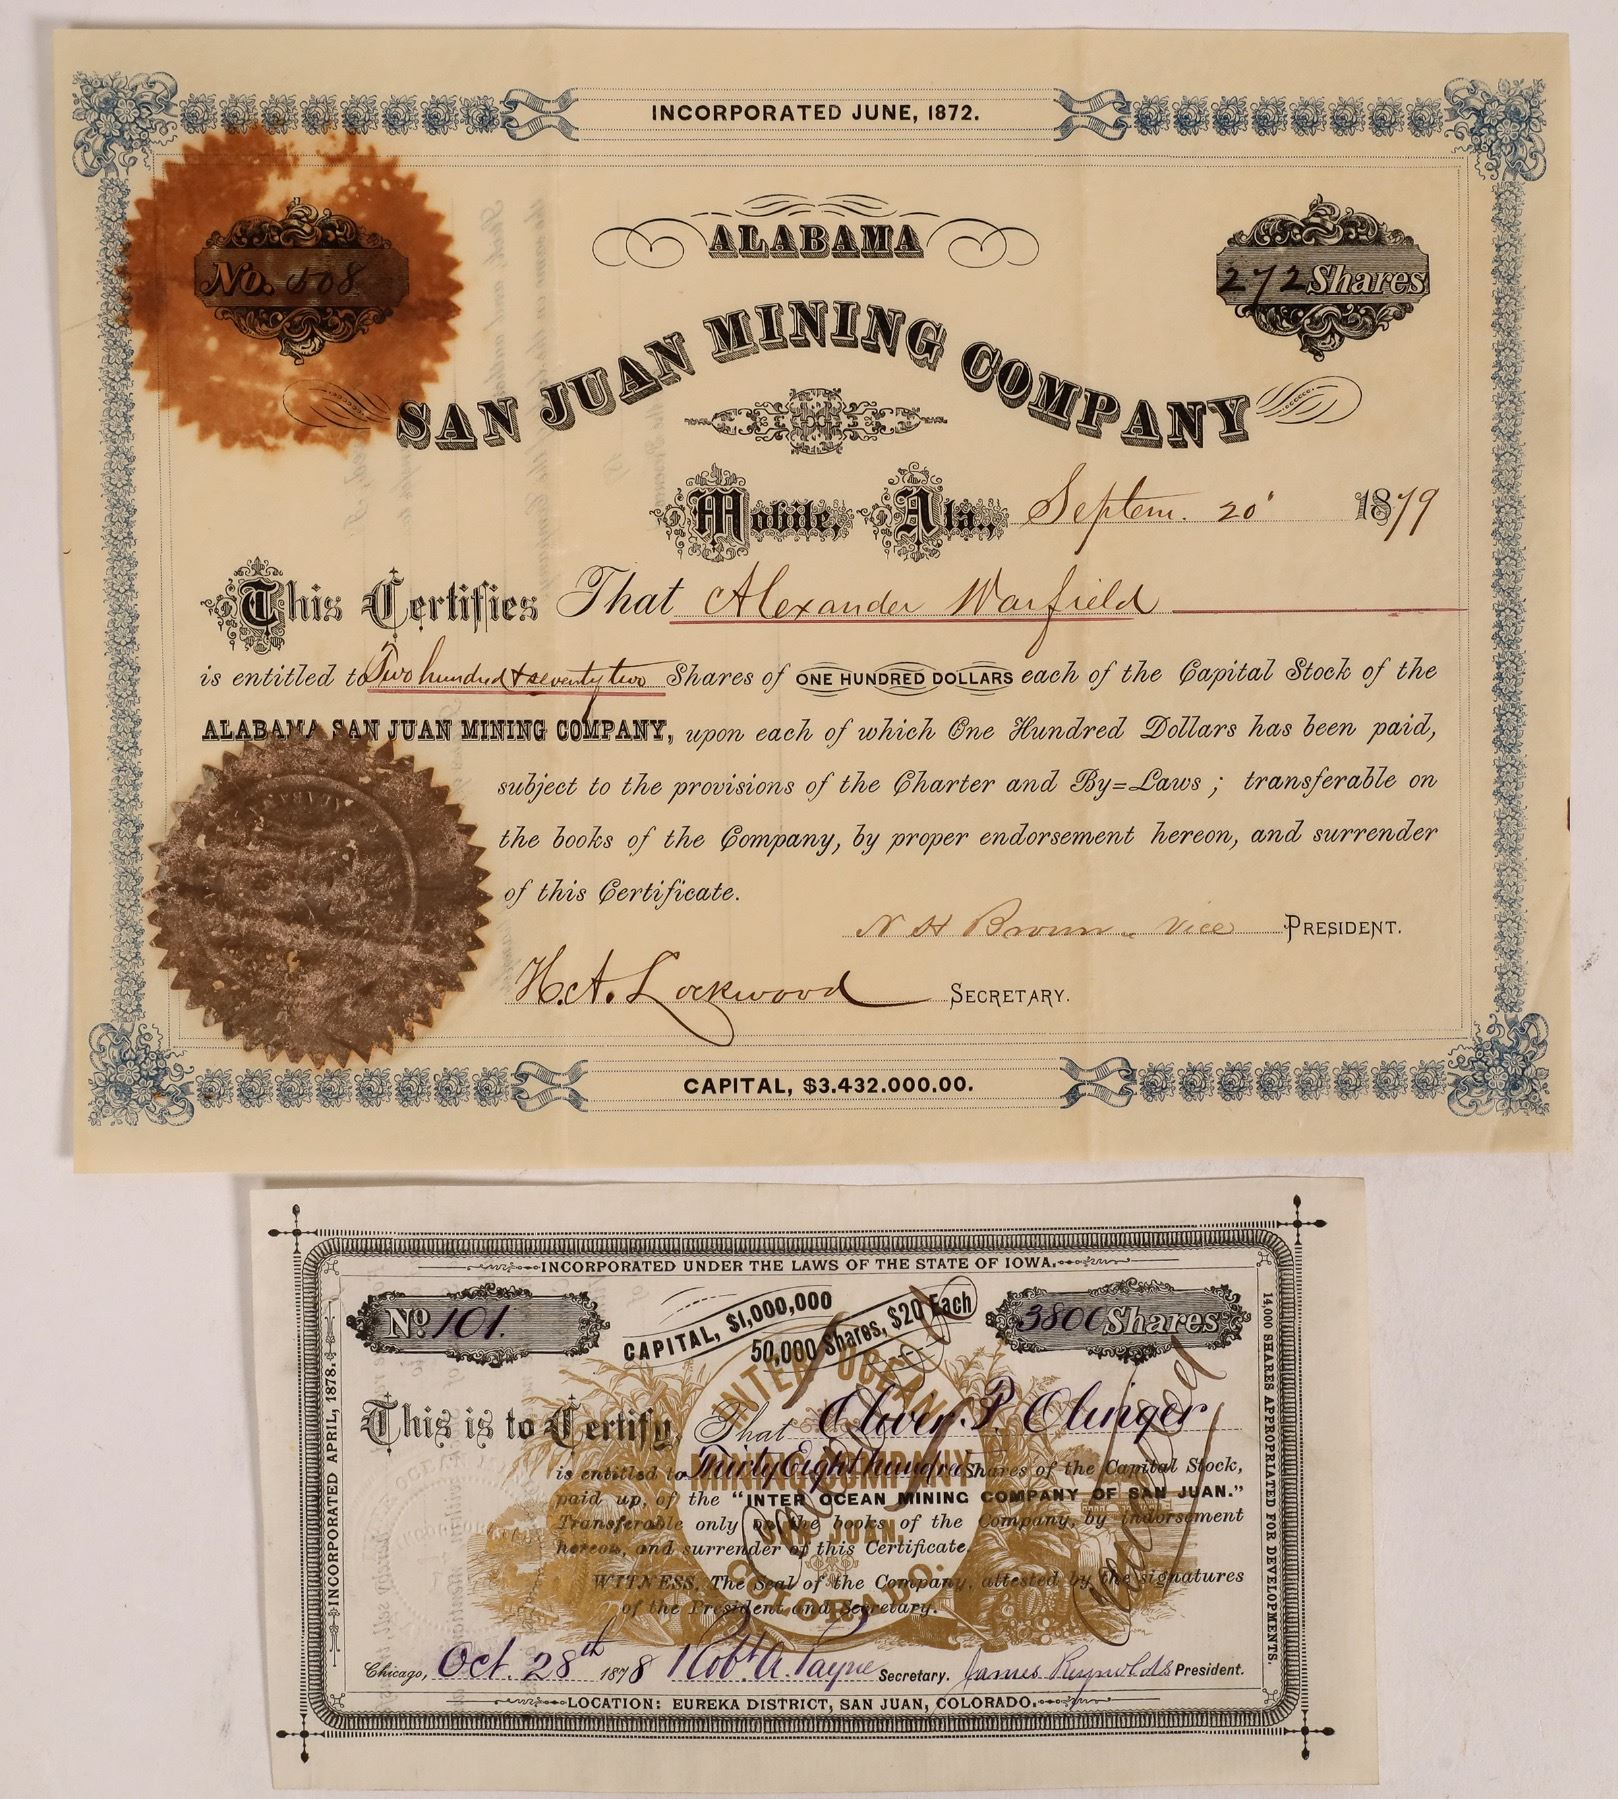 INCORPORATED JUNE, 1872.
No. 508
272 Shares
ALABAMA
SAN JUAN MINING COMPANY
Mobile, Ala., Septem. 20' 1879
This Certifies That Alexander Warfield
is entitled to Two hundred & seventy two Shares of ONE HUNDRED DOLLARS each of the Capital Stock of the
ALABAMA SAN JUAN MINING COMPANY, upon each of which One Hundred Dollars has been paid,
subject to the provisions of the Charter and By=Laws ; transferable on
the books of the Company, by proper endorsement hereon, and surrender
of this Certificate.
N H Brown - Vice PRESIDENT.
H. A. Lockwood SECRETARY.
CAPITAL, $3.432.000.00.
INCORPORATED UNDER THE LAWS OF THE STATE OF IOWA.
No 101.
CAPITAL, $1,000,000
50,000 Shares, $20 Each
3800 Shares
INCORPORATED APRIL, 1878.
14,000 SHARES APPROPRIATED FOR DEVELOPMENTS.
INTER OCEAN
MINING COMPANY
SAN JUAN.
COLORADO.
This is to Certify, That Oliver P. Olinger
is entitled to Thirty Eight hundred Shares of the Capital Stock,
paid up, of the "INTER OCEAN MINING COMPANY OF SAN JUAN."
Transferable only on the books of the Company, by indorsement
hereon, and surrender of this Certificate.
WITNESS, The Seal of the Company, attested by the signatures
of the President and Secretary.
Chicago, Oct. 28th 1878 Robt. A. Payne Secretary. James Reynolds President.
LOCATION: EUREKA DISTRICT, SAN JUAN, COLORADO.